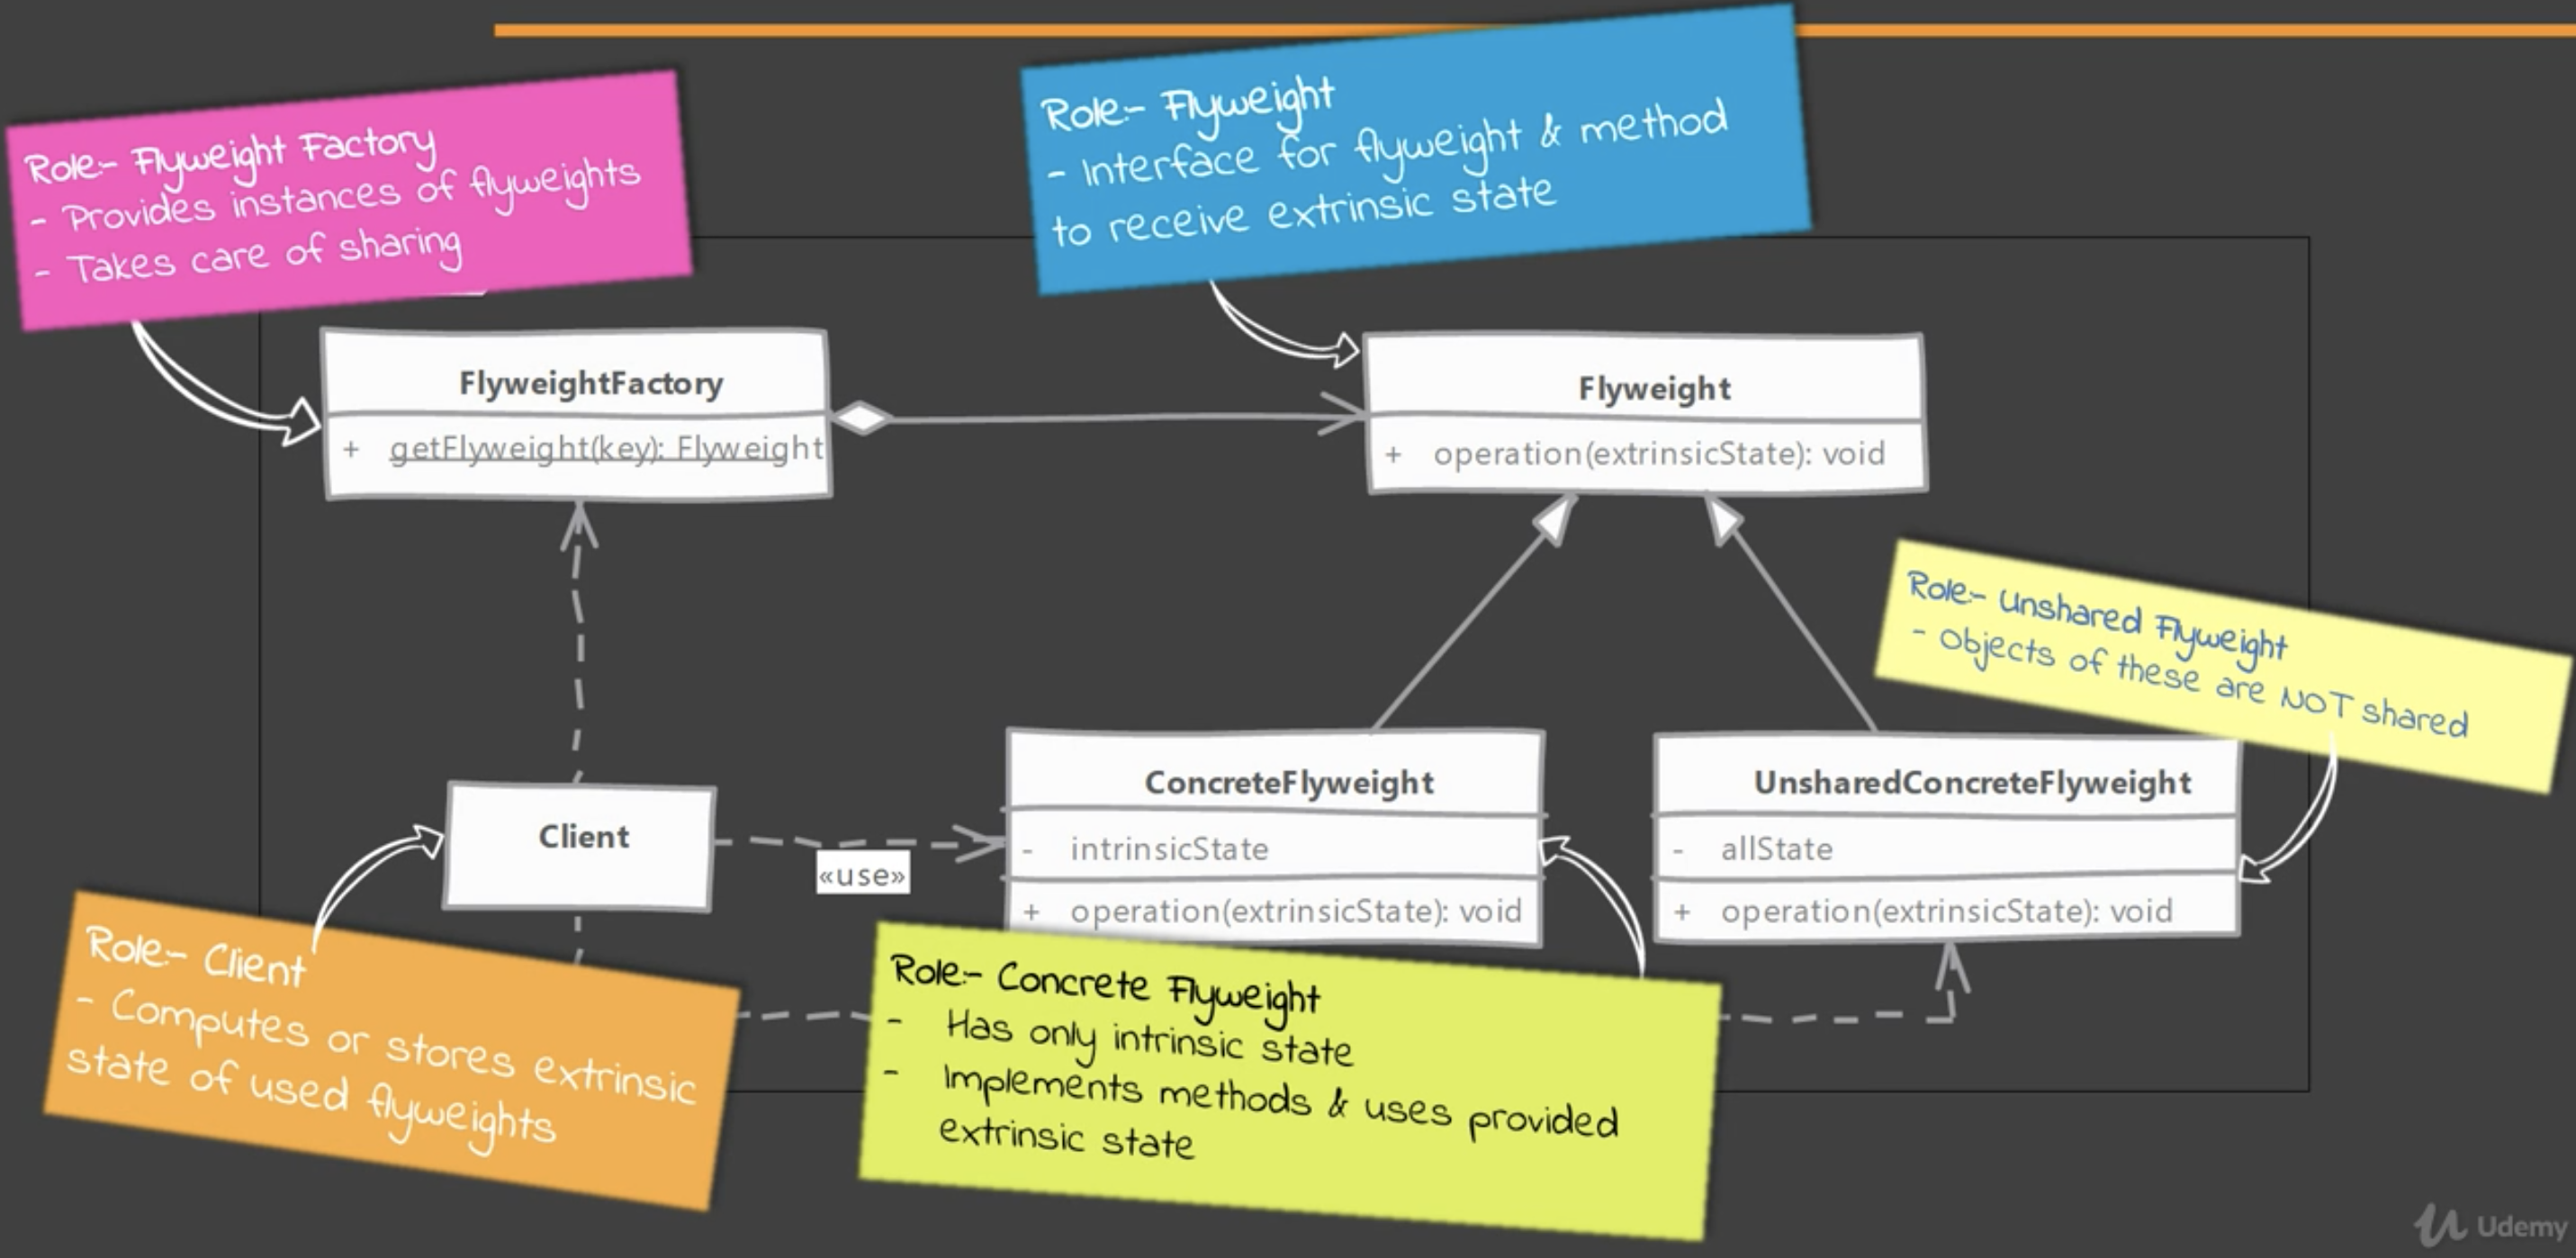 Role:- Flyweight Factory
- Provides instances of flyweights
- Takes care of sharing
Role:- Flyweight
- Interface for flyweight & method
to receive extrinsic state
FlyweightFactory
+ getFlyweight(key): Flyweight
Flyweight
+ operation(extrinsicState): void
Role:- Unshared Flyweight
- Objects of these are NOT shared
Client
«use»
ConcreteFlyweight
- intrinsicState
+ operation(extrinsicState): void
UnsharedConcreteFlyweight
- allState
+ operation(extrinsicState): void
Role:- Client
- Computes or stores extrinsic
state of used flyweights
Role:- Concrete Flyweight
- Has only intrinsic state
- Implements methods & uses provided
extrinsic state
Udemy